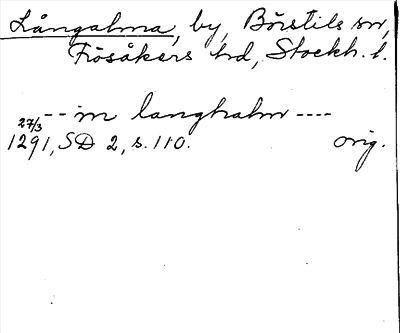 Långalma, by, Börstils sn,
Frösåkers hd, Stockh. l.
-- in langhalm ----
27/3
1291, SD 2, s. 110. orig.